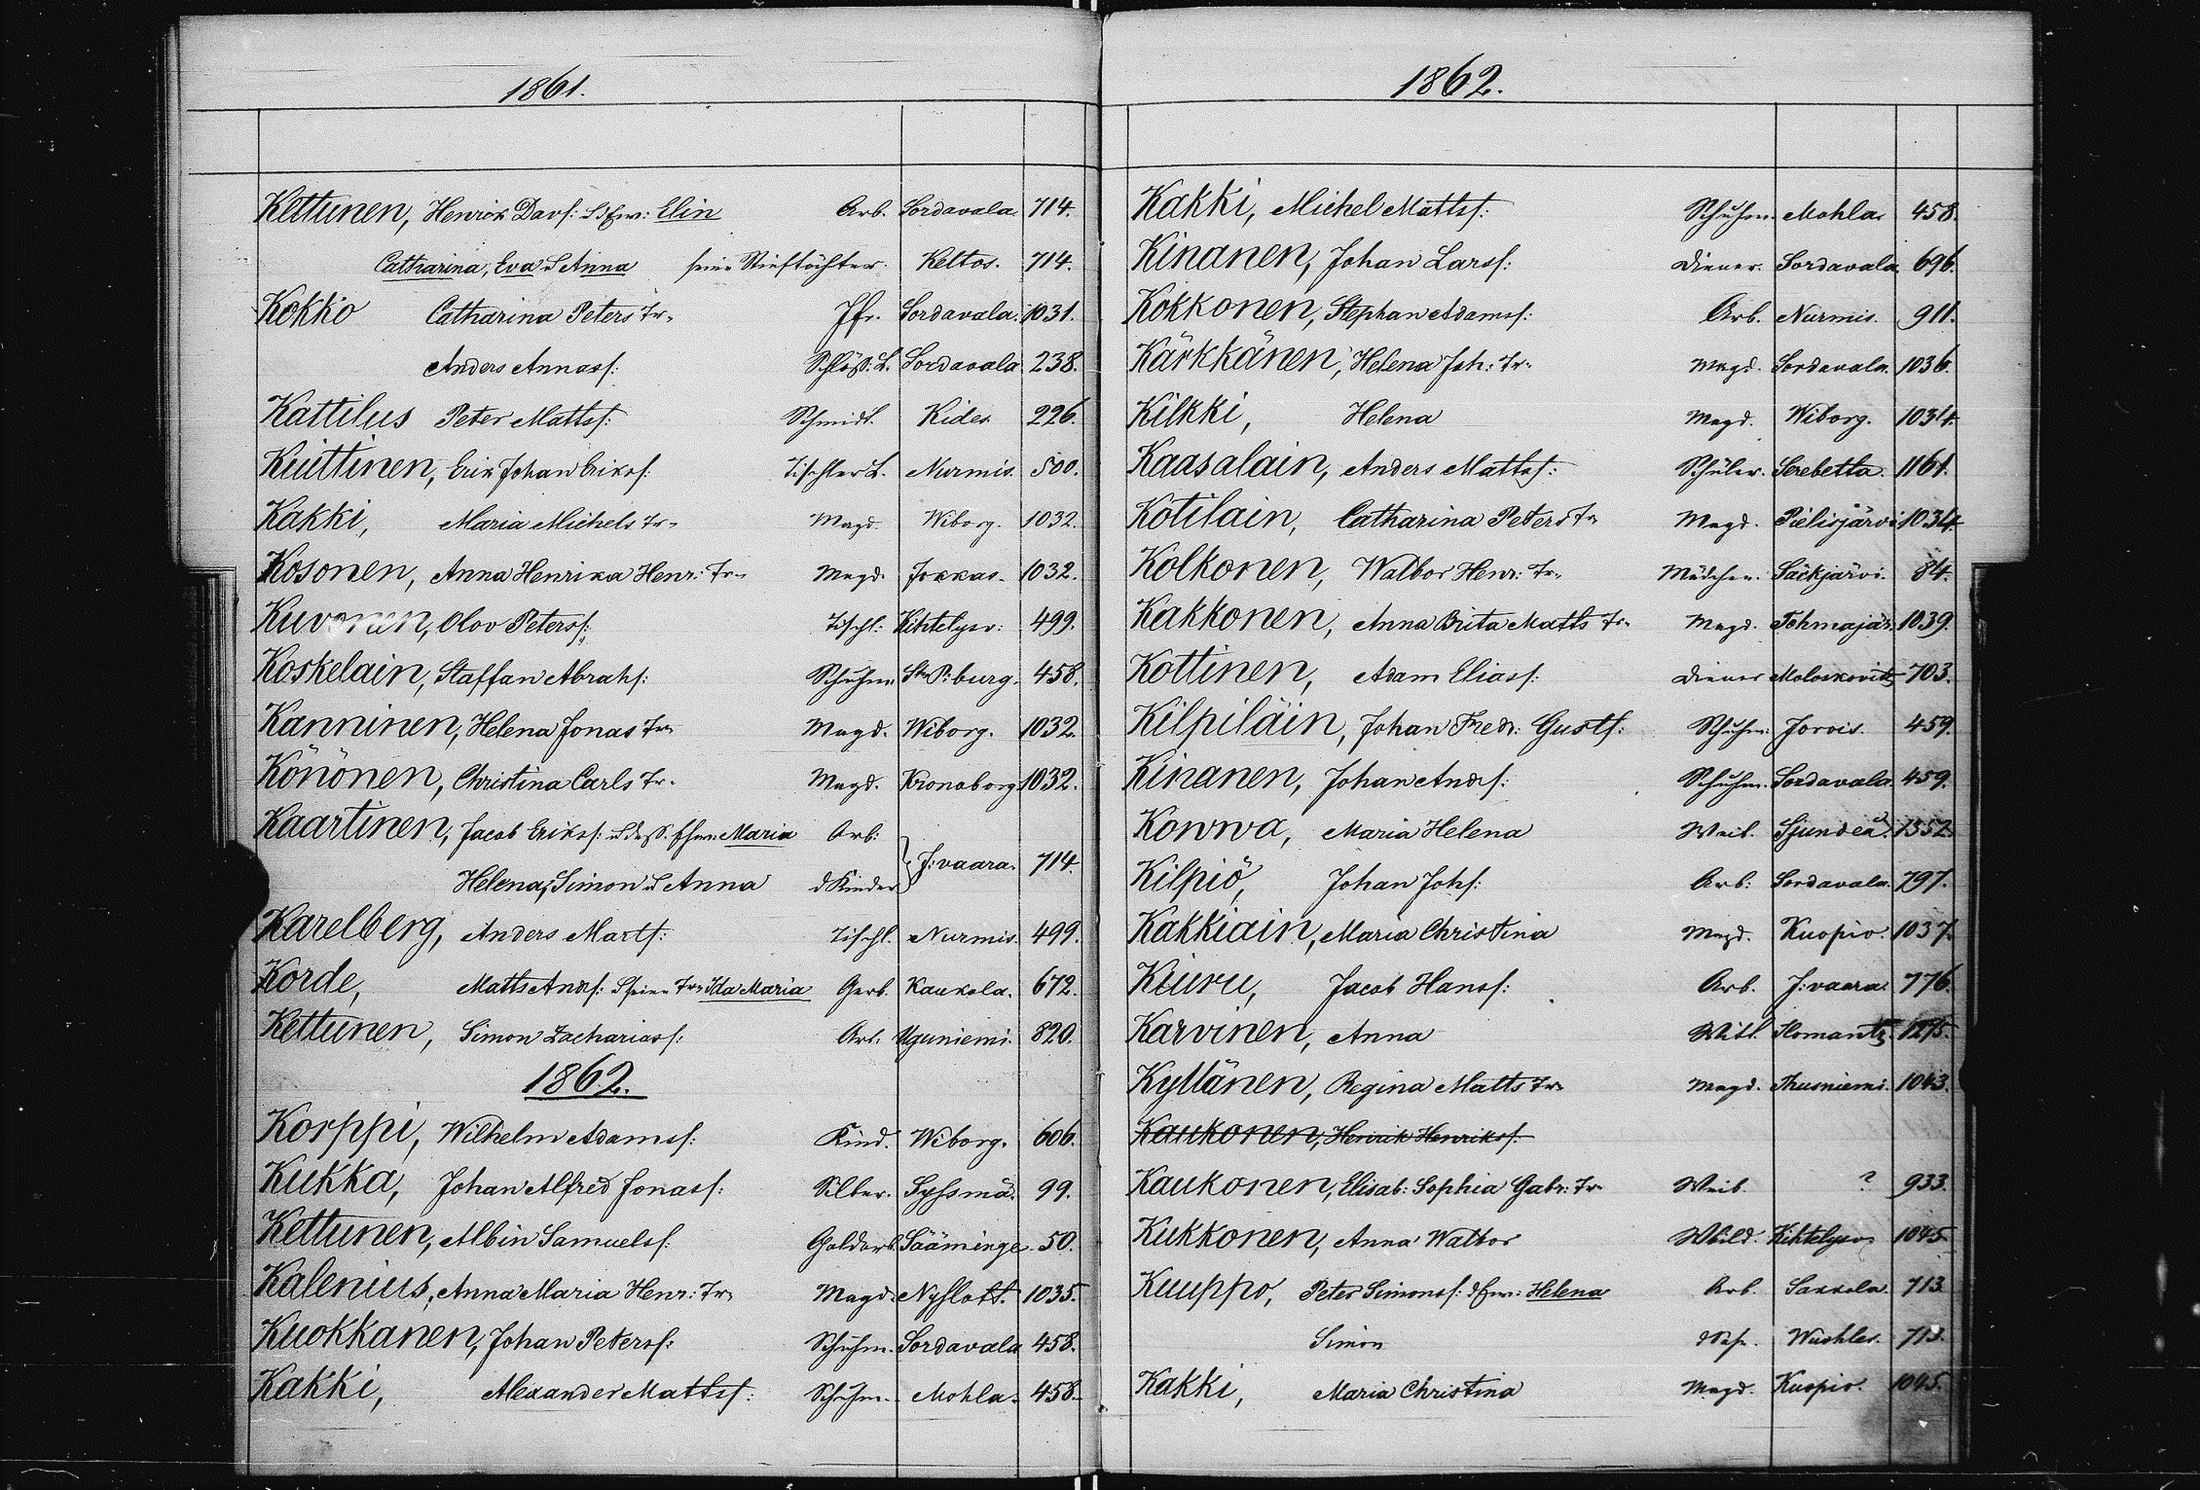 1861.
Kettunen, Henrik Davs: & Efr: Elin Arb. Sordavala. 714.
Catharina, Eva & Anna seine Stieftöchter. Keltos. 714.
Kokko Catharina Peters Tr. Jfr. Sordavala. 1031.
Anders Annasf: Schloß: L. Sordavala 238.
Kattilus Peter Mattsf: Schmidt. Kides. 226.
Kuittinen, Erik Johan Eriksf: Tischler L. Nurmis. 500.
Kakki, Maria Michels Tr. Magd. Wiborg. 1032.
Kosonen, Anna Henrika Henr: Tr. Magd. Jokkas. 1032.
Kuvonen, Olov Petersf: Tischl: Kihtelysv: 499.
Koskelain, Staffan Abrahs: Schuhm St. P. burg. 458.
Kanninen, Helena Jonas Tr. Magd. Wiborg. 1032.
Könönen, Christina Carls Tr. Magd. Kronoborg. 1032.
Kaartinen, Jacob Eriksf: & deß. Ehfr: Maria Arb.
Helena, Simon & Anna d Kinder J:vaara. 714.
Karelberg, Anders Martf: Tischl. Nurmis. 499.
Korde, Matts Andf: & seine Tr. Ida Maria Gerb. Kaukola. 672.
Kettunen, Simon Zachariasf: Arb. Uguniemi. 820.
1862.
Korppi, Wilhelm Adamsf: Kind. Wiborg. 606.
Kukka, Johan Alfred Jonasf: Silber. Sysmä. 99.
Kettunen, Albin Samuelsf: Goldarb. Sääminge. 50.
Kalenius, Anna Maria Henr: Tr. Magd. Nyslott. 1035.
Kuokkanen, Johan Petersf: Schuhm. Sordavala 458.
Kakki, Alexander Mattsf: Schuhm. Mohla. 458.
1862.
Kakki, Michel Mattsf: Schuhm. Mohla. 458.
Kinanen, Johan Larsf: Diener. Sordavala 696.
Kokkonen, Stephan Adamsf: Arb. Nurmis. 911.
Kärkkänen, Helena Joh: Tr. Magd. Sordavala. 1036.
Kilkki, Helena Magd. Wiborg. 1034.
Kaasalain, Anders Mattsf: Schüler. Serebetta. 1161.
Kotilain, Catharina Peters Tr Magd. Pielisjärvi 1034.
Kolkonen, Walbor Henr: Tr. Mädchen. Säckjärvi. 84.
Kakkonen, Anna Brita Matts Tr. Magd. Tohmajär. 1039.
Kottinen, Adam Eliasf: Diener Moloskovitz 703.
Kilpiläin, Johan Fredr: Gustf: Schuhm: Jorois. 459.
Kinanen, Johan Andf: Schuhm. Sordavala. 459.
Kowwa, Maria Helena Weib. Sjundeå. 1352.
Kilpiö, Johan Johf: Arb: Sordavala. 797.
Kakkiain, Maria Christina Magd. Kuopio. 1037.
Kiuru, Jacob Hansf: Arb. J:vaara. 776.
Karvinen, Anna Witt. Ilomantz. 1275.
Kyllänen, Regina Matts Tr. Magd. Thusniemi. 1043.
Kaukonen, Henrik Henriksf.
Kaukonen, Elisab: Sophia Gabr: Tr Weib. ? 933.
Kukkonen, Anna Walbor Kihtelysv 1045.
Kuuppo, Peter Simonsf: & Efr: Helena Arb. Sakkola. 713.
Simon 713.
Kakki, Maria Christina Magd. Kuopio. 1045.